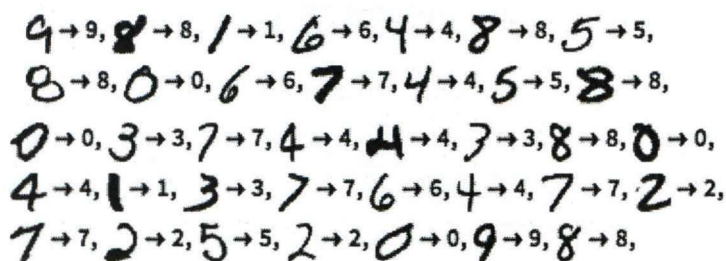 9→9, 8→8, 1→1, 6→6, 4→4, 8→8, 5→5,
8→8, 0→0, 6→6, 7→7, 4→4, 5→5, 8→8,
0→0, 3→3, 7→7, 4→4, 4→4, 3→3, 8→8, 0→0,
4→4, 1→1, 3→3, 7→7, 6→6, 4→4, 7→7, 2→2,
7→7, 2→2, 5→5, 2→2, 0→0, 9→9, 8→8,